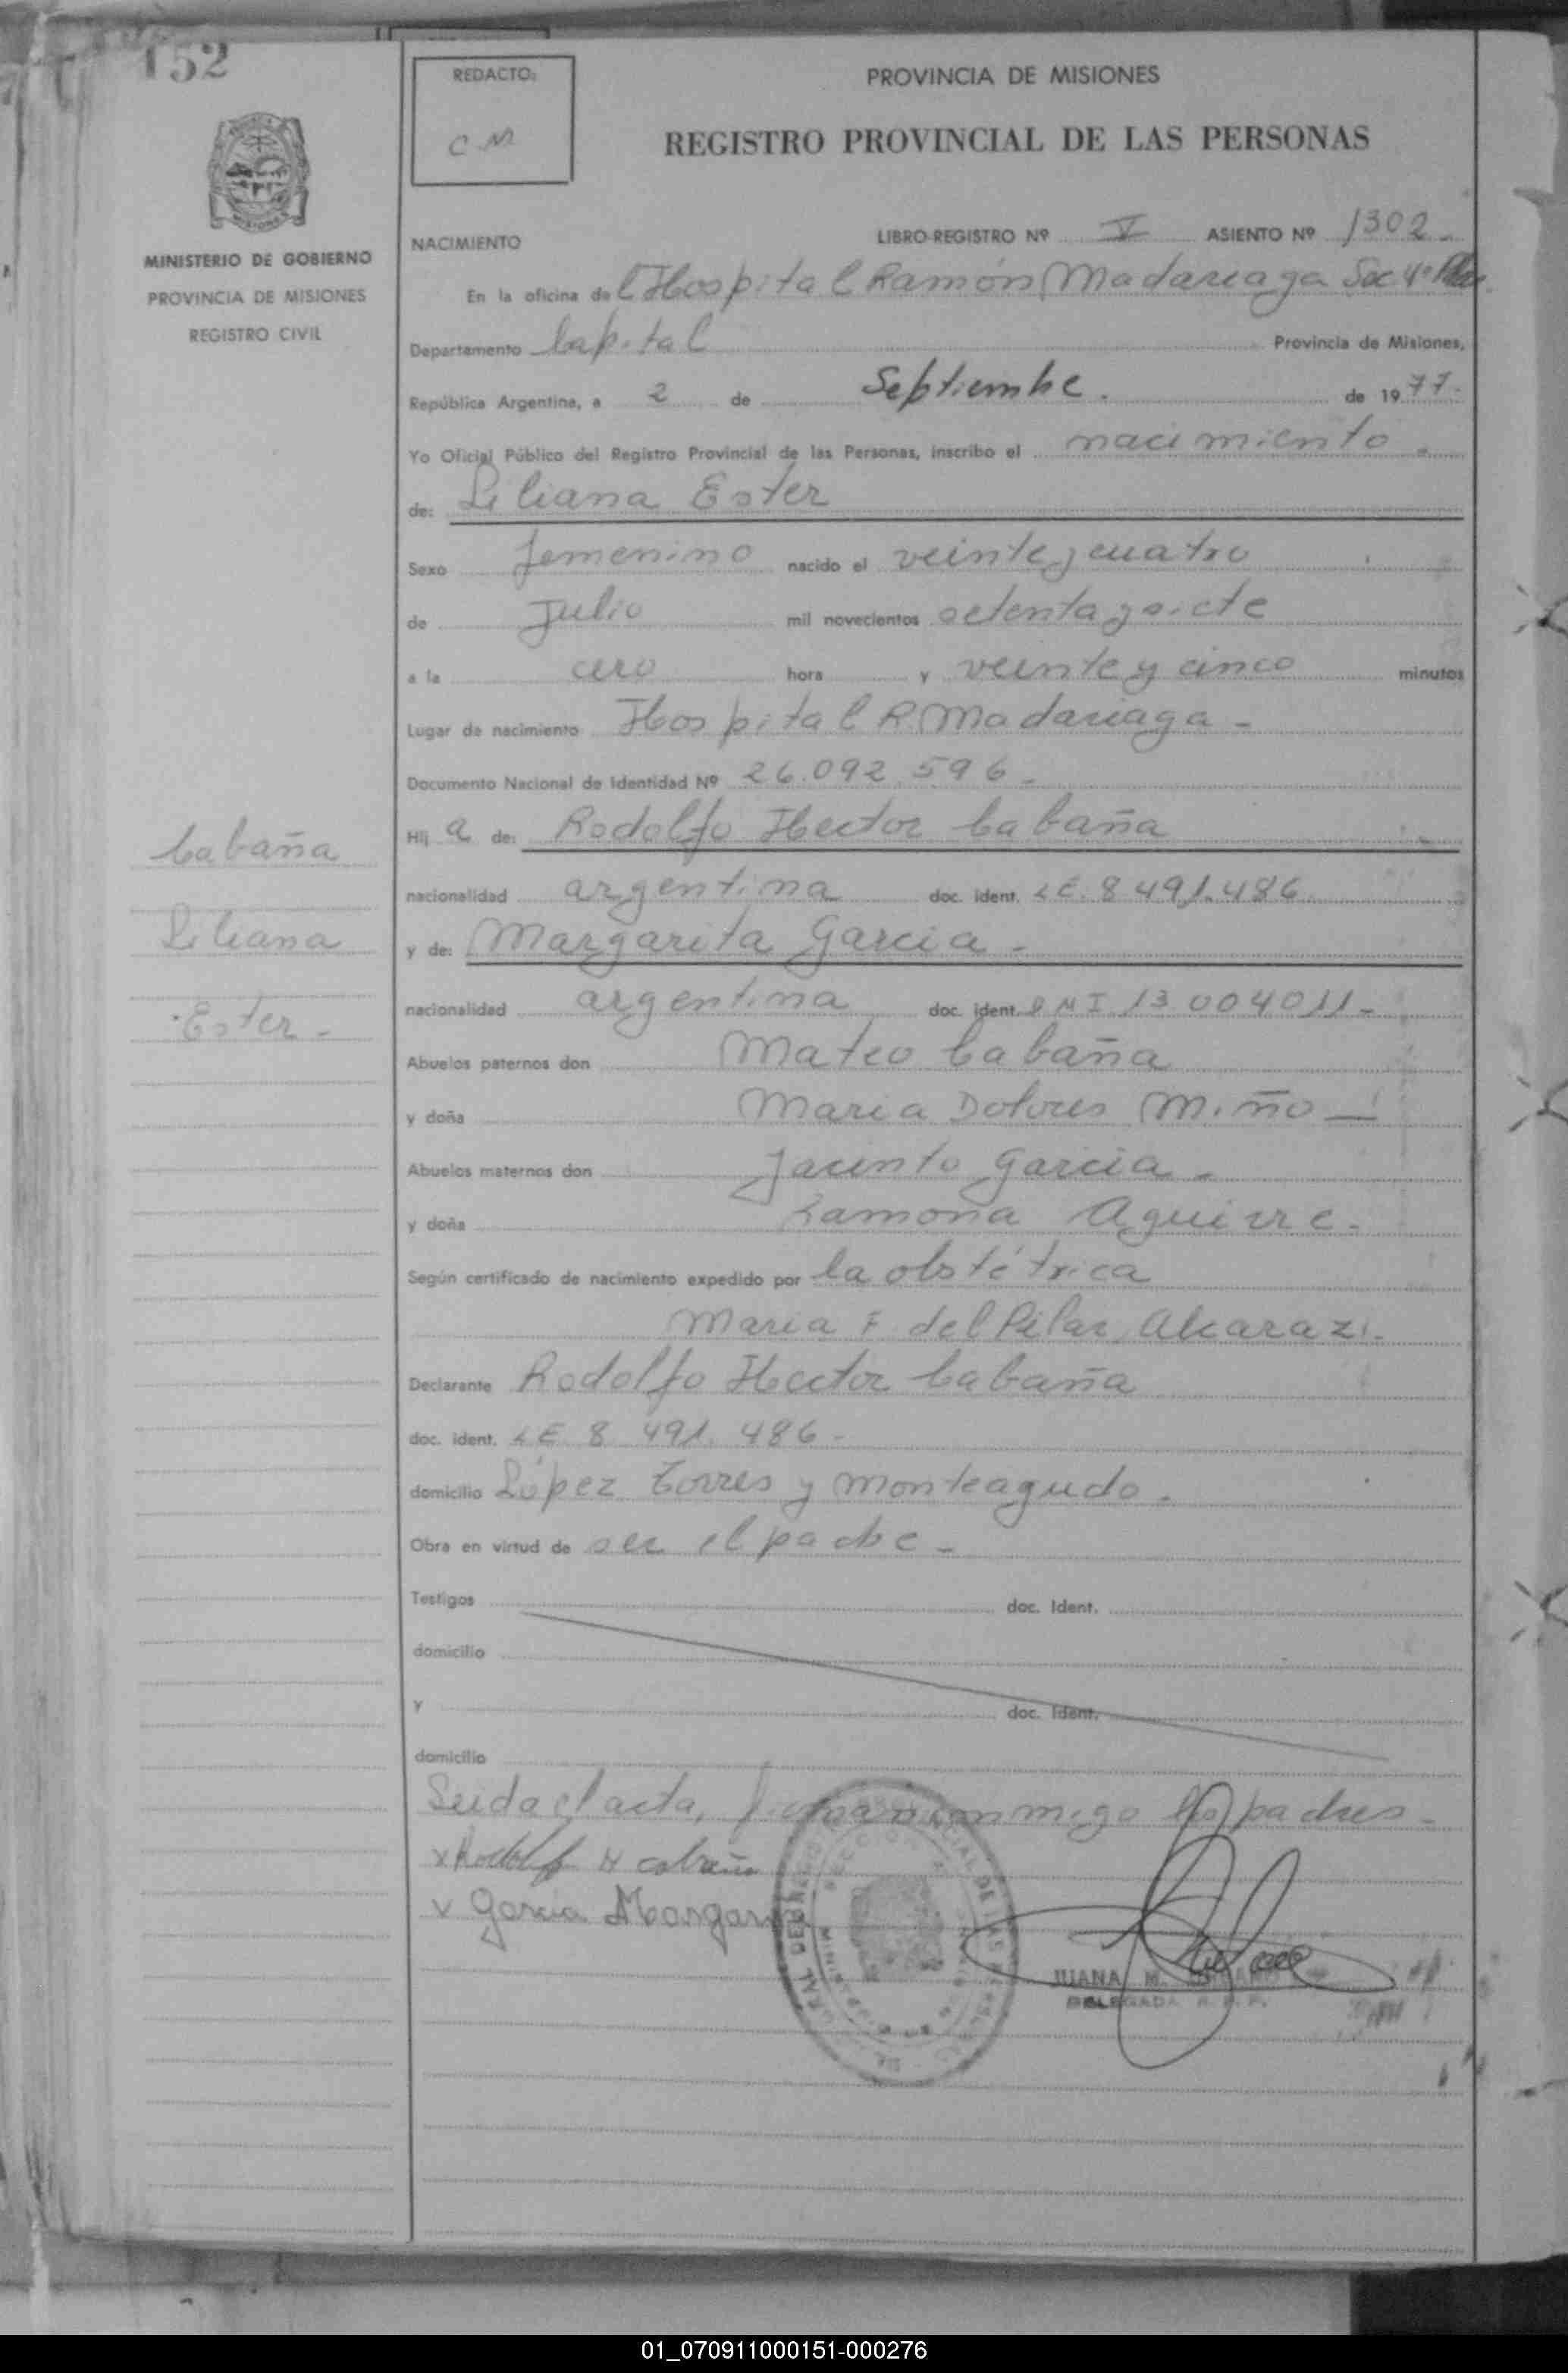 152
REDACTO:
C.M.
PROVINCIA DE MISIONES
REGISTRO PROVINCIAL DE LAS PERSONAS
MINISTERIO DE GOBIERNO
PROVINCIA DE MISIONES
REGISTRO CIVIL
NACIMIENTO
LIBRO-REGISTRO Nº V ASIENTO Nº 1302-
En la oficina del Hospital Ramón Madariaga Sec 4ª
Departamento Capital Provincia de Misiones,
República Argentina, a 2 de Septiembre. de 1977.
Yo Oficial Público del Registro Provincial de las Personas, inscribo el nacimiento
de: Liliana Ester
Sexo femenino nacido el veinte y cuatro
de Julio mil novecientos setenta y siete
a la cero hora y veinte y cinco minutos
Lugar de nacimiento Hospital R. Madariaga -
Documento Nacional de Identidad Nº 26.092.596-
Hij a de: Rodolfo Hector Cabaña
nacionalidad argentina doc. ident. LE. 8 491.486
y de: Margarita Garcia -
nacionalidad argentina doc. ident. DNI 13 004011-
Abuelos paternos don Mateo Cabaña
y doña Maria Dolores Miño -
Abuelos maternos don Jacinto Garcia -
y doña Ramona Aguirre.
Según certificado de nacimiento expedido por la obstétrica
Maria F. del Pilar Alcaraz.
Declarante Rodolfo Hector Cabaña
doc. ident. LE 8 491. 486-
domicilio López Torres y Monteagudo.
Obra en virtud de ser el padre -
Testigos doc. Ident.
domicilio
y doc. Ident.
domicilio
Leida el acta, firman conmigo los padres -
x Rodolfo H Cabaña
x Garcia Margarita
JUANA M.
DELEGADA R. P. P.
Cabaña
Liliana
Ester -
01_070911000151-000276